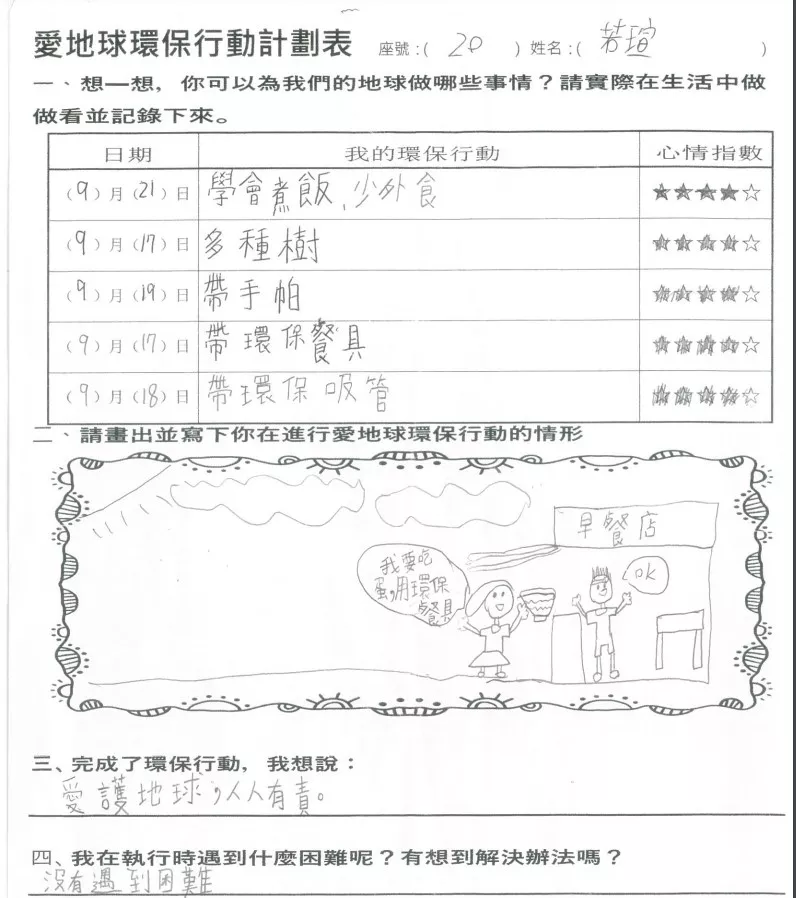 愛地球環保行動計劃表 座號:( 20 ) 姓名:( 若瑄 )
一、想一想，你可以為我們的地球做哪些事情？請實際在生活中做
做看並記錄下來。
日期 我的環保行動 心情指數
(9)月(21)日 學會煮飯、少外食 ★★★★☆
(9)月(17)日 多種樹 ★★★★☆
(9)月(19)日 帶手帕 ★★★★☆
(9)月(17)日 帶環保餐具 ★★★★☆
(9)月(18)日 帶環保吸管 ★★★★☆
二、請畫出並寫下你在進行愛地球環保行動的情形
早餐店
我要吃
蛋,用環保
餐具
OK
三、完成了環保行動，我想說：
愛護地球，人人有責。
四、我在執行時遇到什麼困難呢？有想到解決辦法嗎？
沒有遇到困難